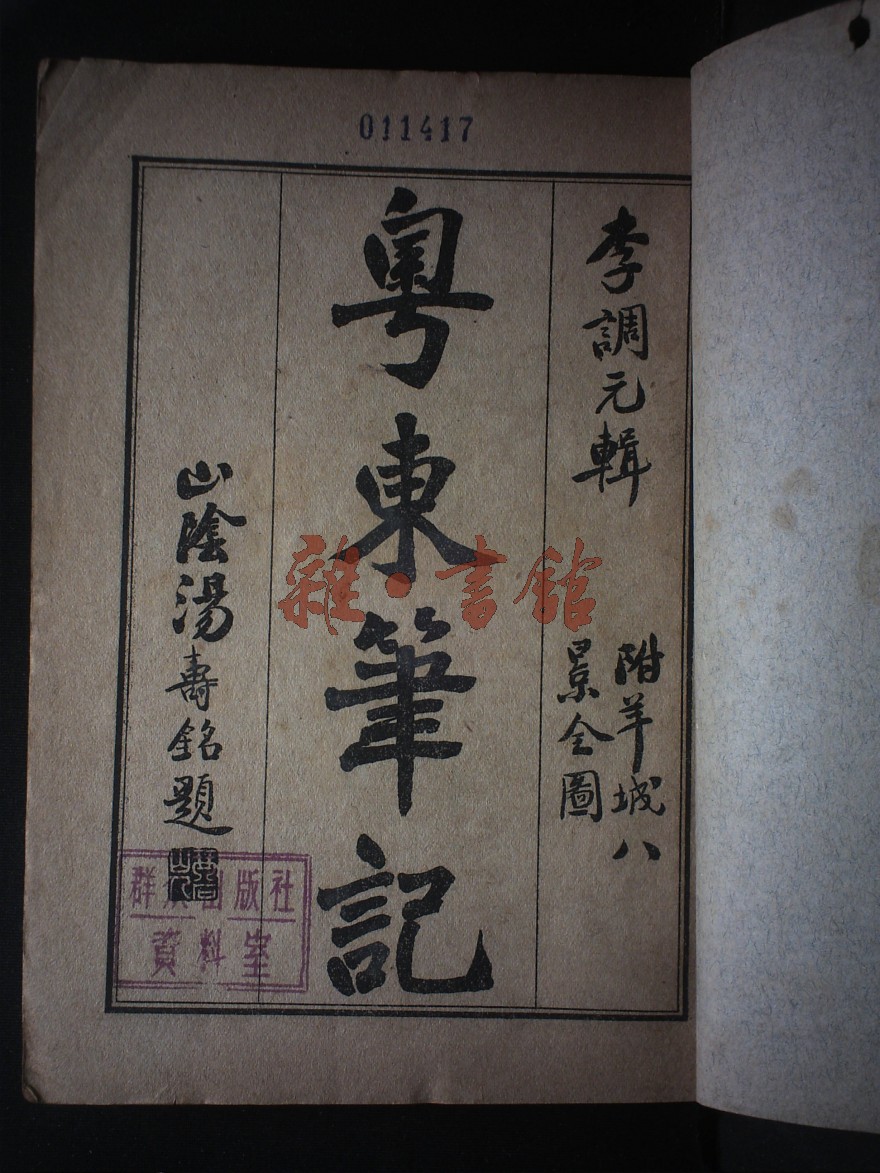 011417
李調元輯
附羊城八
景全圖
粵東筆記
山陰湯壽銘題
雜·書館
群众出版社
資料室